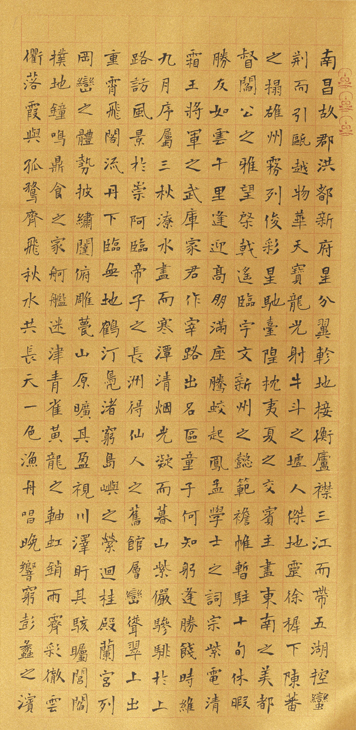 南昌故郡洪都新府星分翼軫地接衡廬襟三江而帶五湖控蠻
荆而引甌越物華天寶龍光射牛斗之墟人傑地靈徐穉下陳蕃
之榻雄州霧列俊彩星馳臺隍枕夷夏之交賓主盡東南之美都
督閻公之雅望棨戟遙臨宇文新州之懿範襜帷暫駐十旬休暇
勝友如雲千里逢迎髙朋滿座騰蛟起鳳孟學士之詞宗紫電清
霜王將軍之武庫家君作宰路出名區童子何知躬逢勝餞時維
九月序屬三秋潦水盡而寒潭清烟光凝而暮山紫儼驂騑於上
路訪風景於崇阿臨帝子之長洲得仙人之舊館層巒聳翠上出
重霄飛閣流丹下臨無地鶴汀鳧渚窮島嶼之縈迴桂殿蘭宮列
岡巒之體勢披繡闥俯雕甍山原曠其盈視川澤盱其駭矚閭閻
撲地鐘鳴鼎食之家舸艦迷津青雀黃龍之軸虹銷雨霽彩徹雲
衢落霞與孤鶩齊飛秋水共長天一色漁舟唱晚響窮彭蠡之濱